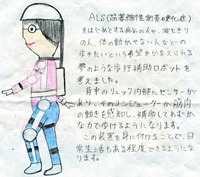 ALS(筋萎縮性側索硬化症)
をはじめとする病気の方や、寝たきり
の人、体の動かせない人などの
歩きたいという希望をかなえられる
夢のような歩行補助ロボットを
考えました。
背中のリュック内部にセンサーがあ
り、そのコンピューターが筋肉
の動きを感知し、補助してわずか
な力で歩けるようになります。
この装置を身に付けることで、日
常生活もある程度できるようにな
ります。